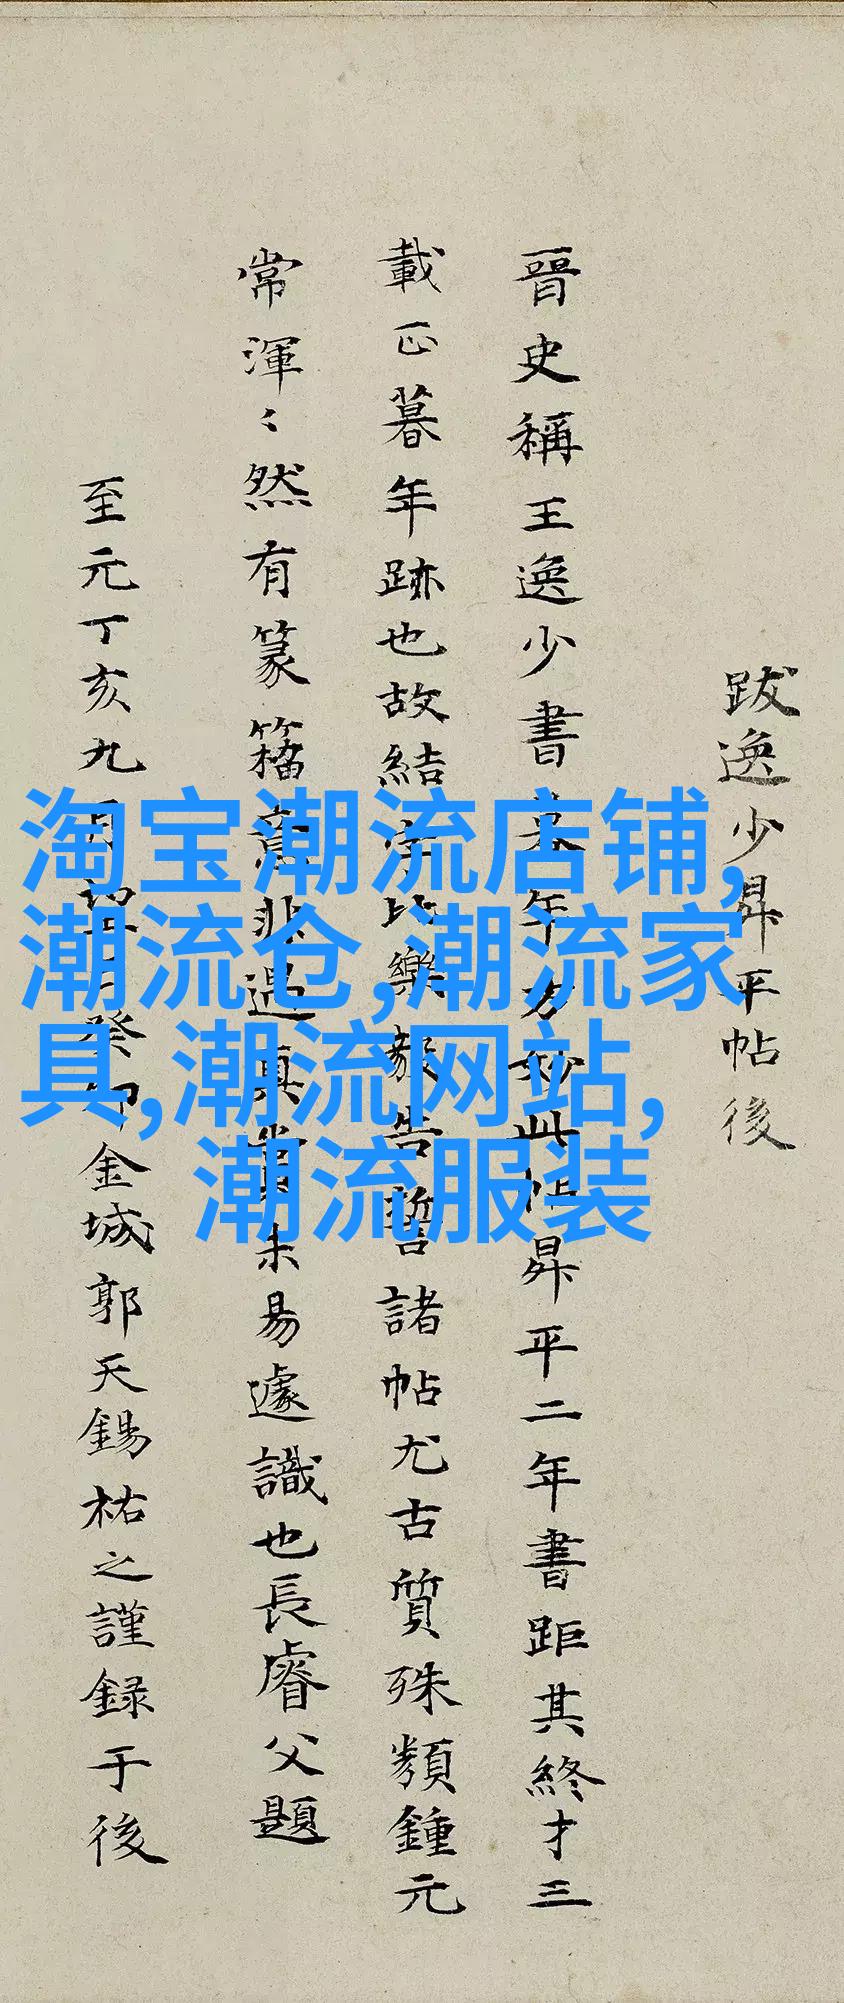 跋逸少昇平帖後
晉史稱王逸少書末年方妙此帖昇平二年書距其終才三
載正暮年跡也故結字比樂毅告誓諸帖尤古質殊類鍾元
常渾〻然有篆籀意非遇真賞未易遽識也長睿父題
至元丁亥九月望日癸卯金城郭天錫祐之謹録于後
淘宝潮流店铺,
潮流仓,潮流家
具,潮流网站,
潮流服装